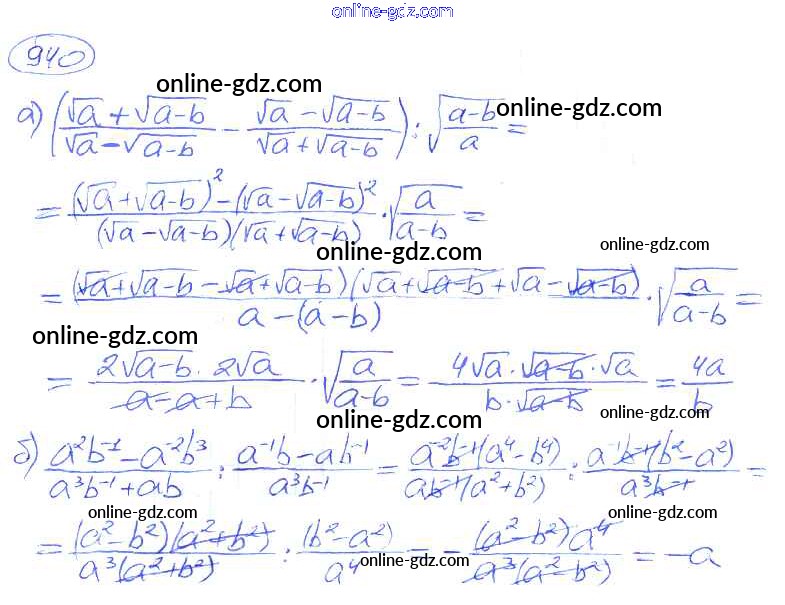 online-gdz.com
940
online-gdz.com
а) ((√a + √(a-b))/(√a - √(a-b)) - (√a - √(a-b))/(√a + √(a-b))) : √((a-b)/a) =
online-gdz.com
= ((√a + √(a-b))² - (√a - √(a-b))²)/((√a - √(a-b))(√a + √(a-b))) · √(a/(a-b)) =
online-gdz.com online-gdz.com
= ((√a + √(a-b) - √a + √(a-b))(√a + √(a-b) + √a - √(a-b)))/(a - (a-b)) · √(a/(a-b)) =
online-gdz.com
= (2√(a-b) · 2√a)/(a - a + b) · √(a/(a-b)) = (4√a · √(a-b) · √a)/(b · √(a-b)) = 4a/b
online-gdz.com online-gdz.com
б) (a²b⁻¹ - a⁻²b³)/(a³b⁻¹ + ab) : (a⁻¹b - ab⁻¹)/(a³b⁻¹) = (a⁻²b⁻¹(a⁴ - b⁴))/(ab⁻¹(a² + b²)) : (a⁻¹b⁻¹(b² - a²))/(a³b⁻¹) =
online-gdz.com online-gdz.com online-gdz.com
= ((a² - b²)(a² + b²))/(a³(a² + b²)) : (b² - a²)/a⁴ = - ((a² - b²)a⁴)/(a³(a² - b²)) = -a
online-gdz.com online-gdz.com